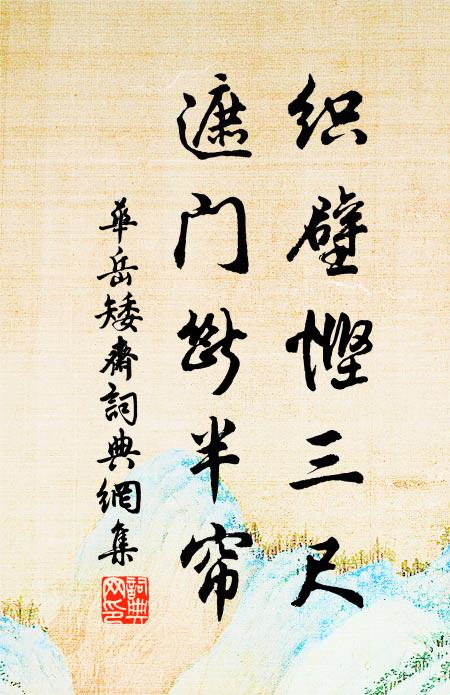 织壁悭三尺
遮门断半帘
華岳矮齋詞典網集
詞典网印